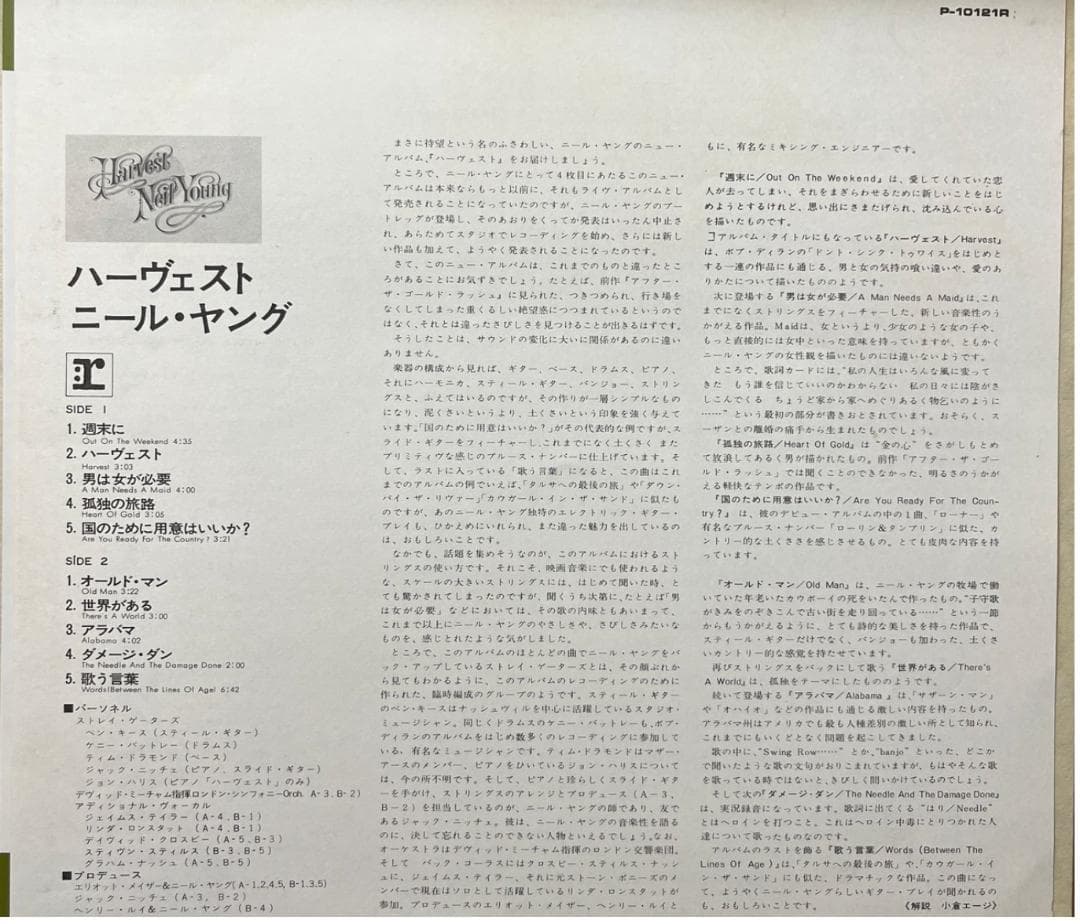 P-10121R
Harvest
Neil Young
ハーヴェスト
ニール・ヤング
r
SIDE 1
1. 週末に
Out On The Weekend 4:35
2. ハーヴェスト
Harvest 3:03
3. 男は女が必要
A Man Needs A Maid 4:00
4. 孤独の旅路
Heart Of Gold 3:05
5. 国のために用意はいいか?
Are You Ready For The Country? 3:21
SIDE 2
1. オールド・マン
Old Man 3:22
2. 世界がある
There's A World 3:00
3. アラバマ
Alabama 4:02
4. ダメージ・ダン
The Needle And The Damage Done 2:00
5. 歌う言葉
Words(Between The Lines Of Age) 6:42
■パーソネル
ストレイ・ゲーターズ
ベン・キース(スティール・ギター)
ケニー・バットレー(ドラムス)
ティム・ドラモンド(ベース)
ジャック・ニッチェ(ピアノ、スライド・ギター)
ジョン・ハリス(ピアノ「ハーヴェスト」のみ)
デヴィッド・ミーチャム指揮ロンドン・シンフォニーOrch. A-3、B-2)
アディショナル・ヴォーカル
ジェイムス・テイラー(A-4、B-1)
リンダ・ロンスタット(A-4、B-1)
デイヴィッド・クロスビー(A-5、B-3)
スティヴン・スティルス(B-3、B-5)
グラハム・ナッシュ(A-5、B-5)
■プロデュース
エリオット・メイザー&ニール・ヤング(A-1,2,4,5, B-1,3,5)
ジャック・ニッチェ(A-3, B-2)
ヘンリー・ルイ&ニール・ヤング(B-4)
まさに待望という名のふさわしい、ニール・ヤングのニュー・
アルバム『ハーヴェスト』をお届けしましょう。
ところで、ニール・ヤングにとって4枚目にあたるこのニュー・
アルバムは本来ならもっと以前に、それもライヴ・アルバムとし
て発売されることになっていたのですが、ニール・ヤングのブー
トレッグが登場し、そのあおりをくってか発表はいったん中止さ
れ、あらためてスタジオでレコーディングを始め、さらには新し
い作品も加えて、ようやく発表されることになったのです。
さて、このニュー・アルバムは、これまでのものと違ったとこ
ろがあることにお気ずきでしょう。たとえば、前作『アフター・
ザ・ゴールド・ラッシュ』に見られた、つきつめられ、行き場を
なくしてしまった重くるしい絶望感につつまれているというので
はなく、それとは違ったさびしさを見つけることが出きるはずです。
そうしたことは、サウンドの変化に大いに関係があるのに違い
ありません。
楽器の構成から見れば、ギター、ベース、ドラムス、ピアノ、
それにハーモニカ、スティール・ギター、バンジョー、ストリン
グスと、ふえてはいるのですが、その作りが一層シンプルなもの
になり、泥くさいというより、土くさいという印象を強く与えて
います。「国のために用意はいいか?」がその代表的な例ですが、ス
ライド・ギターをフィーチャーし、これまでになく土くさく また
プリミティヴな感じのブルース・ナンバーに仕上げています。そ
して、ラストに入っている「歌う言葉」になると、この曲はこれ
までのアルバムの例でいえば、「タルサへの最後の旅」や「ダウン・
バイ・ザ・リヴァー」「カウガール・イン・ザ・サンド」に似たも
のですが、あのニール・ヤング独特のエレクトリック・ギター・
プレイも、ひかえめにいれられ、また違った魅力を出しているの
は、おもしろいことです。
なかでも、話題を集めそうなのが、このアルバムにおけるスト
リングスの使い方です。それこそ、映画音楽にでも使われるよう
な、スケールの大きいストリングスには、はじめて聞いた時、と
ても驚かされてしまったのですが、聞くうち次第に、たとえば「男
は女が必要」などにおいては、その歌の内味ともあいまって、こ
れまで以上にニール・ヤングのやさしさや、さびしさみたいな
ものを、感じとれたような気がしました。
ところで、このアルバムのほとんどの曲でニール・ヤングをバ
ック・アップしているストレイ・ゲーターズとは、その顔ぶれか
ら見てもわかるように、このアルバムのレコーディングのために
作られた、臨時編成のグループのようです。スティール・ギター
のベン・キースはナッシュヴィルを中心に活躍しているスタジオ・
ミュージシャン。同じくドラムスのケニー・バットレーも、ボブ・
ディランのアルバムをはじめ数多くのレコーディングに参加して
いる、有名なミュージシャンです。ティム・ドラモンドはマザー・
アースのメンバー、ピアノをひいているジョン・ハリスについて
は、今の所不明です。そして、ピアノと珍らしくスライド・ギタ
ーを手がけ、ストリングスのアレンジとプロデュース(A-3、
B-2)を担当しているのが、ニール・ヤングの師であり、友で
あるジャック・ニッチェ。彼は、ニール・ヤングの音楽性を語る
のに、決して忘れることのできない人物といえるでしょう。なお、
オーケストラはデヴィッド・ミーチャム指揮のロンドン交響楽団。
そして バック・コーラスにはクロスビー・スティルス・ナッシ
ュに、ジェイムス・テイラー、それに元ストーン・ポニーズのメ
ンバーで現在はソロとして活躍しているリンダ・ロンスタットが
参加。プロデュースのエリオット・メイザー、ヘンリー・ルイと
もに、有名なミキシング・エンジニアーです。
『週末に/Out On The Weekend』は、愛してくれていた恋
人が去ってしまい、それをまぎらわせるために新しいことをはじ
めようとするけれど、思い出にさまたげられ、沈み込んでいる心
を描いたものです。
アルバム・タイトルにもなっている『ハーヴェスト/Harvest』
は、ボブ・ディランの「ドント・シンク・トゥワイス」をはじめと
する一連の作品にも通じる、男と女の気持の喰い違いや、愛のあ
りかたについて描いたもののようです。
次に登場する『男は女が必要/A Man Needs A Maid』は、これ
までになくストリングスをフィーチャーした、新しい音楽性のう
かがえる作品。Maidは、女というより、少女のような女の子や、
もっと直接的には女中といった意味を持っていますが、ともかく
ニール・ヤングの女性観を描いたものには違いないようです。
ところで、歌詞カードには、“私の人生はいろんな風に変って
きた もう誰を信じていいのかわからない 私の日々には陰がさ
しこんでくる ちょうど家から家へめぐりあるく物乞いのように
……”という最初の部分が書きおとされています。おそらく、ス
ーザンとの離婚の痛手から生まれたものでしょう。
『孤独の旅路/Heart Of Gold』は“金の心”をさがしもとめ
て放浪してあるく男が描かれたもの。前作『アフター・ザ・ゴー
ルド・ラッシュ』では聞くことのできなかった、明るさのうかが
える軽快なテンポの作品です。
『国のために用意はいいか?/Are You Ready For The Coun-
try?』は、彼のデビュー・アルバムの中の1曲、「ローナー」や
有名なブルース・ナンバー「ローリン&タンブリン」に似た、カ
ントリー的な土くささを感じさせるもの。とても皮肉な内容を持
っています。
『オールド・マン/Old Man』は、ニール・ヤングの牧場で働
いていた年老いたカウボーイの死をいたんで作ったもの。“子守歌
がきみをのぞきこんで古い街を走り回っている……”という一節
からもうかがえるように、とても詩的な美しさを持った作品で、
スティール・ギターだけでなく、バンジョーも加わった、土くさ
いカントリー的な感覚を持たせています。
再びストリングスをバックにして歌う『世界がある/There's
A World』は、孤独をテーマにしたもののようです。
続いて登場する『アラバマ/Alabama』は、「サザーン・マン」
や「オハイオ」などの作品にも通じる激しい内容を持ったもの。
アラバマ州はアメリカでも最も人種差別の激しい所として知られ、
これまでにもいくどとなく問題を起こしてきました。
歌の中に、“Swing Row……”とか、“banjo”といった、どこか
で聞いたような歌の文句がおりこまれていますが、もはやそんな歌
を歌っている時ではないと、きびしく問いかけているのでしょう。
そして次の『ダメージ・ダン/The Needle And The Damage Done』
は、実況録音になっています。歌詞に出てくる“はり/Needle”
とはヘロインを打つこと。これはヘロイン中毒にとりつかれた人
達について歌ったものなのです。
アルバムのラストを飾る『歌う言葉/Words (Between The
Lines Of Age)』は、「タルサへの最後の旅」や、「カウガール・イ
ン・ザ・サンド」にも似た、ドラマチックな作品。この曲になっ
て、ようやくニール・ヤングらしいギター・プレイが聞かれるの
も、おもしろいことです。
《解説 小倉エージ》